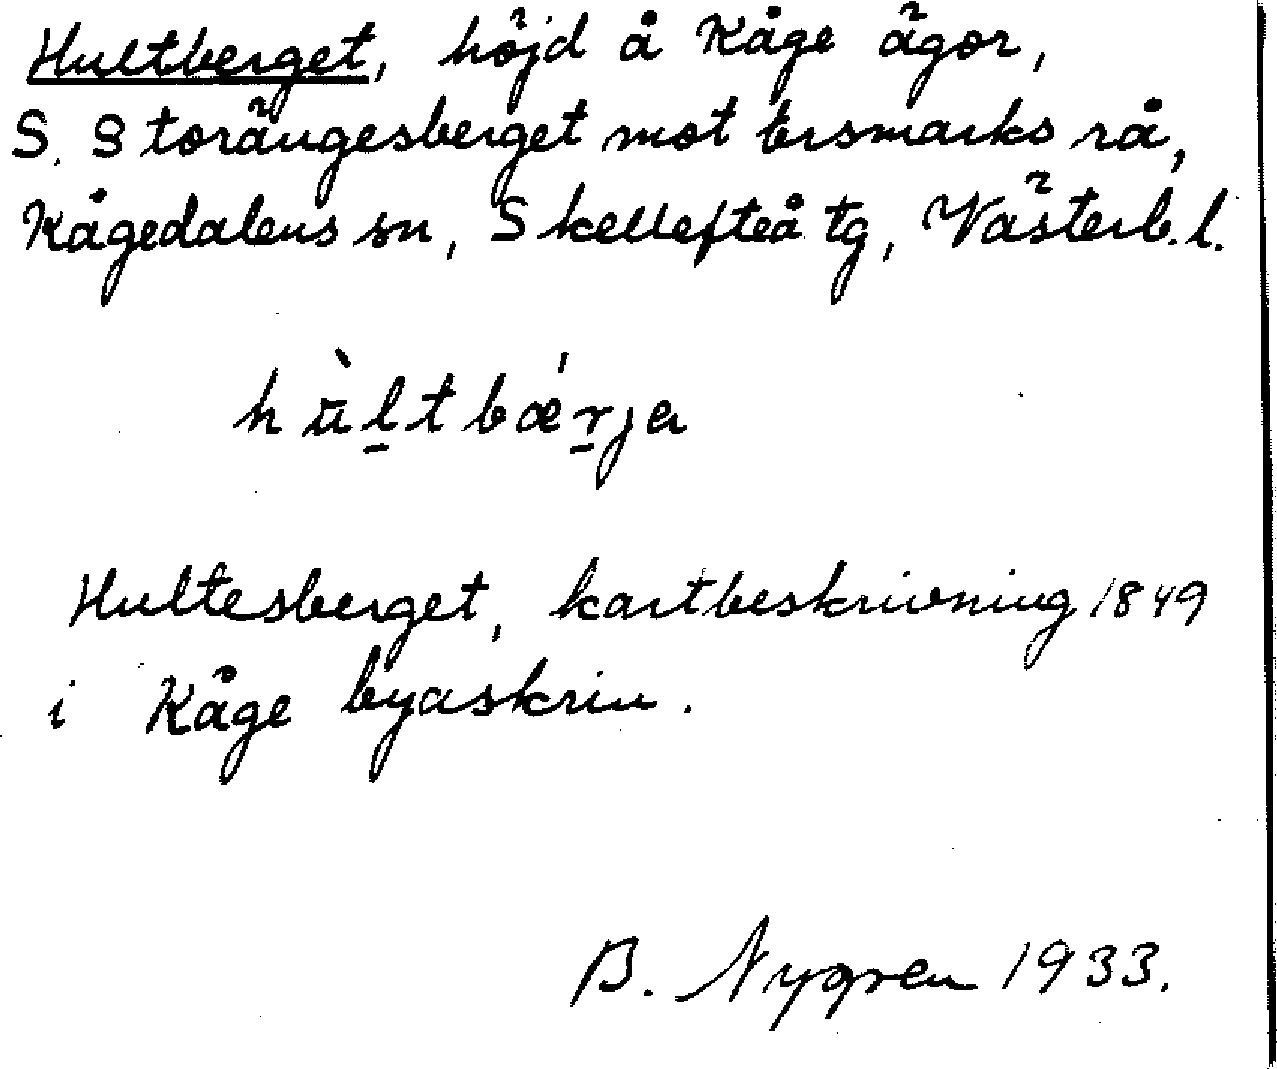 Hultberget, höjd å Kåge ägor,
S. Storängesberget mot Ersmarks rå,
Kågedalens sn, Skellefteå tg, Västerb. l.
hu̇̀l̠tbǽr̠ja
Hultesberget, kartbeskrivning 1849
i Kåge byaskrin.
B. Nygren 1933.